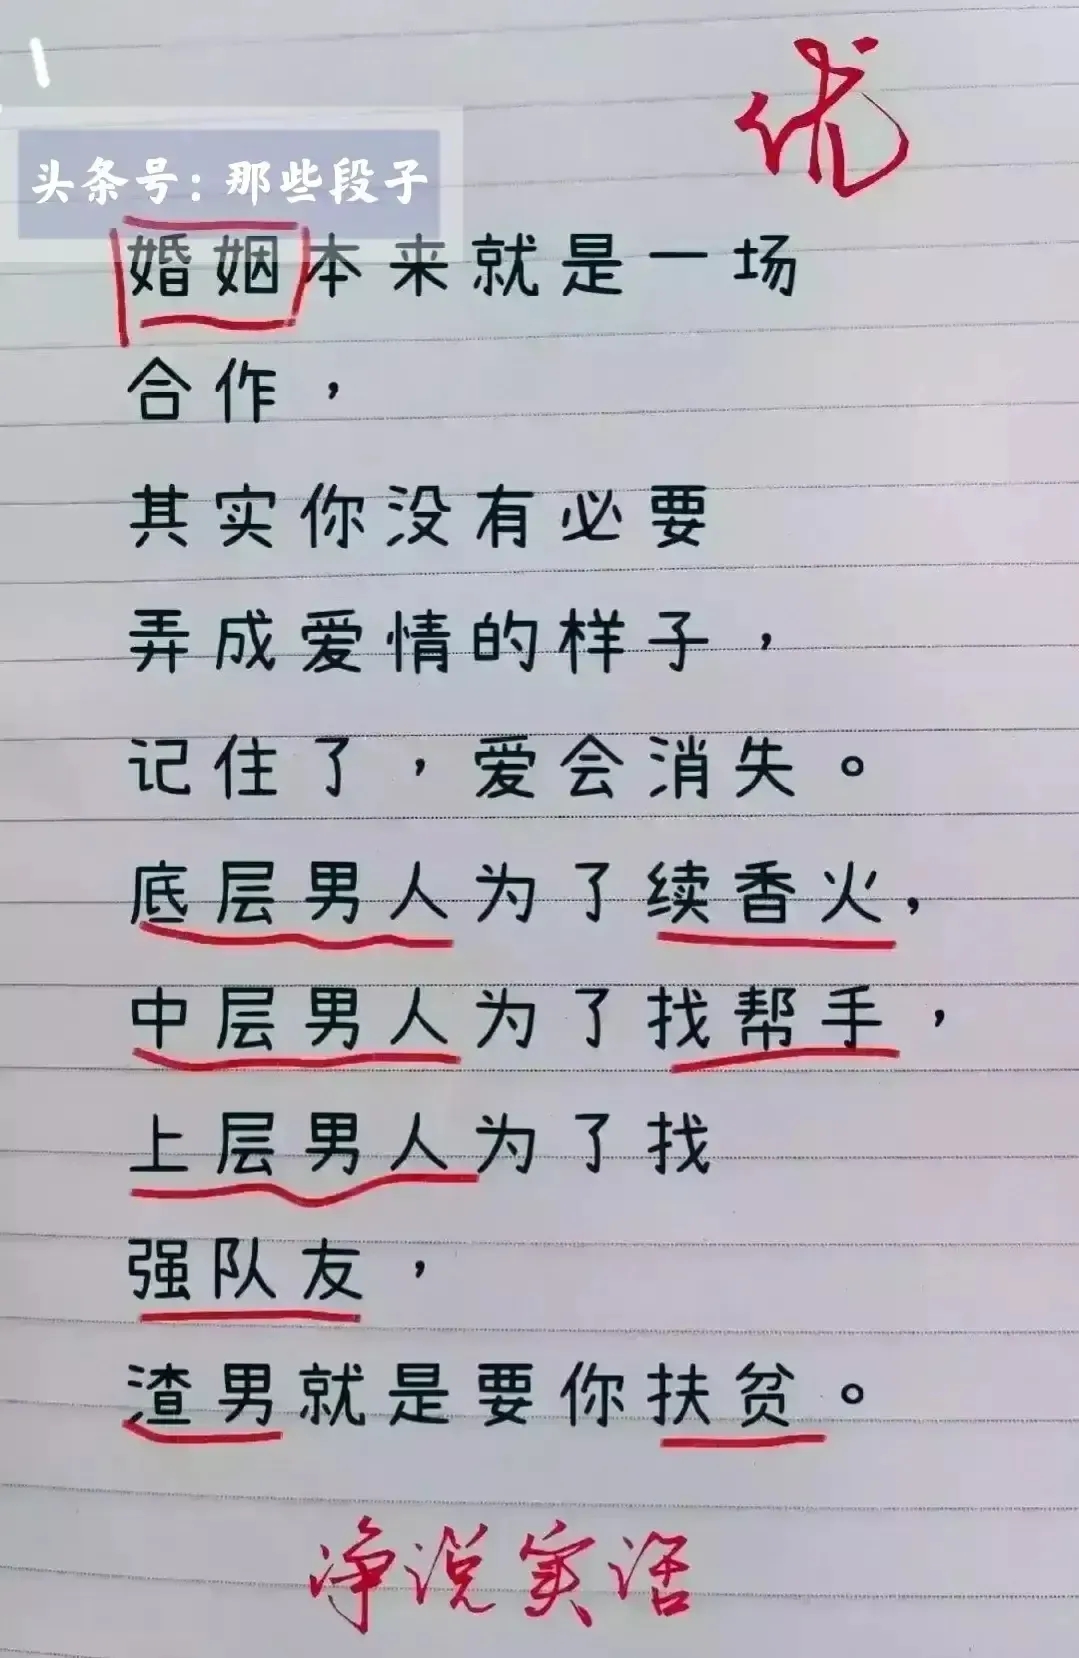 优
头条号：那些段子
婚姻本来就是一场
合作，
其实你没有必要
弄成爱情的样子，
记住了，爱会消失。
底层男人为了续香火，
中层男人为了找帮手，
上层男人为了找
强队友，
渣男就是要你扶贫。
净说实话